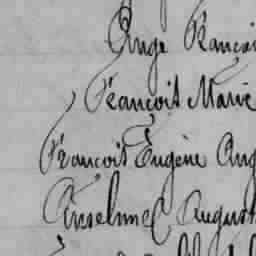 Ange Françoi
François Marie
François Eugène Ang
Anselme August